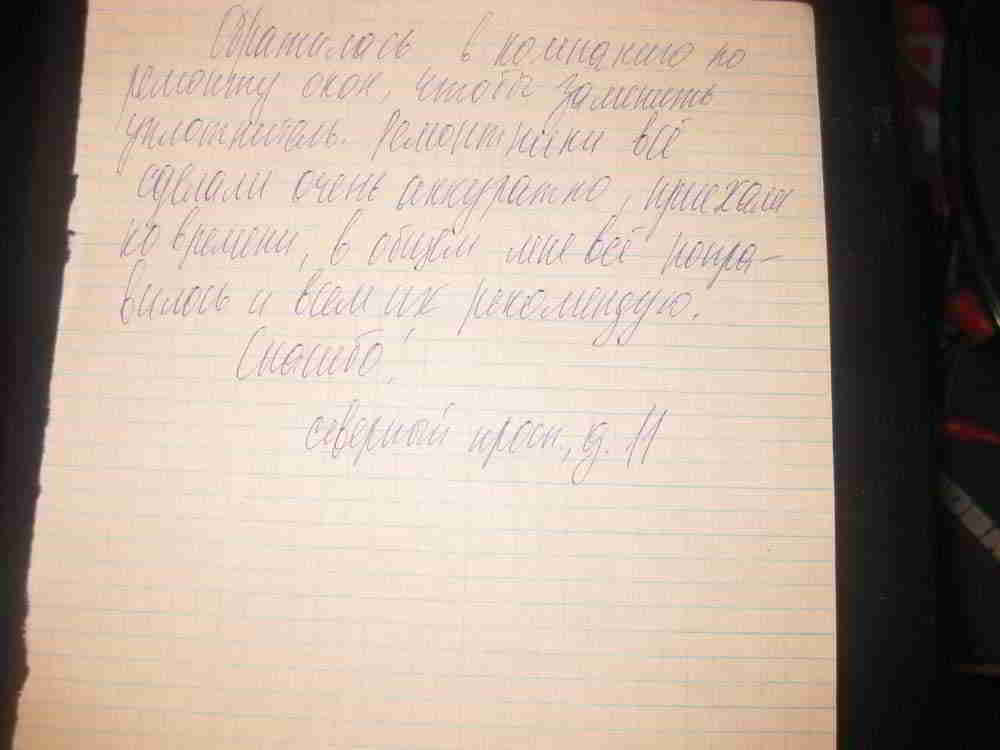 Обратилась в компанию по
ремонту окон, чтобы заменить
уплотнитель. Ремонтники всё
сделали очень аккуратно, приехали
ко времени, в общем мне всё понра-
вилось и всем их рекомендую.
Спасибо!
северный просп., д. 11